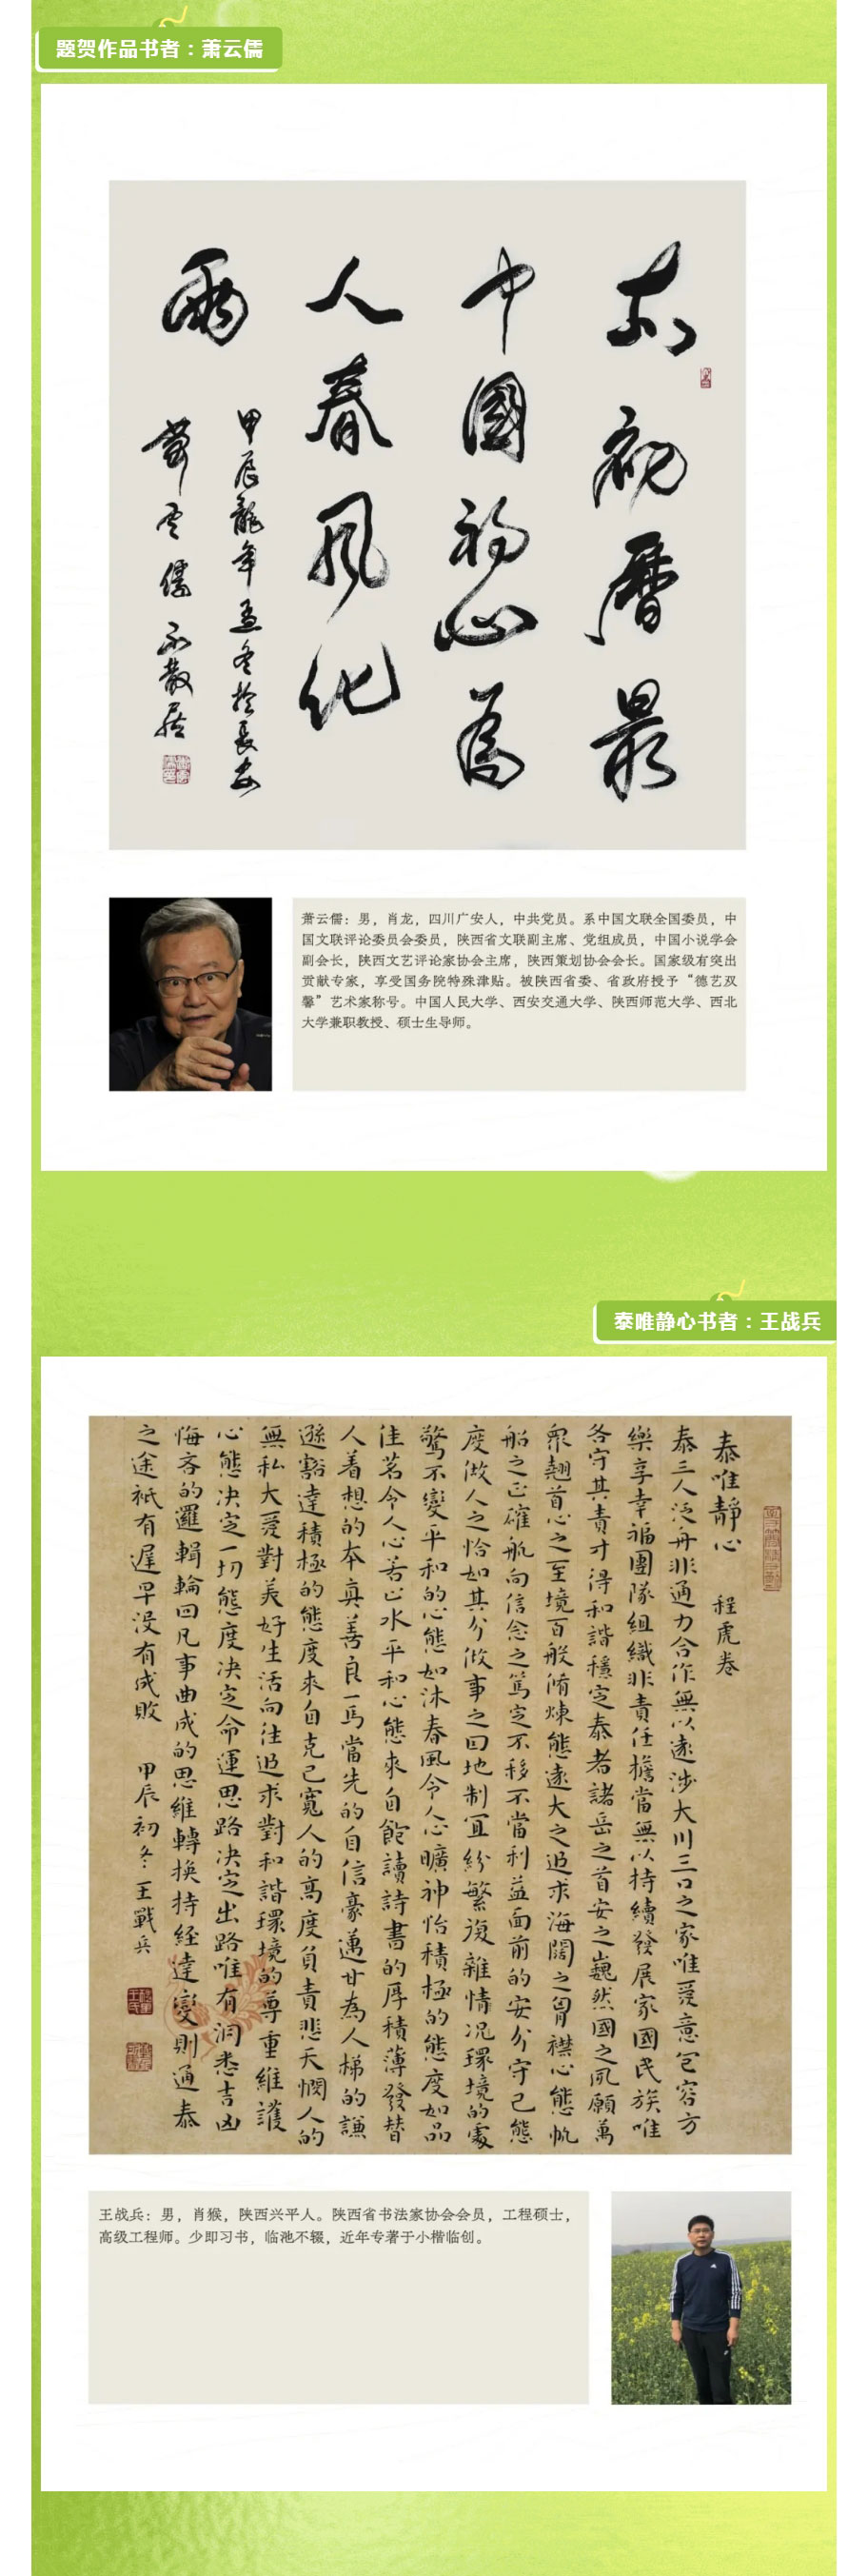 题贺作品书者：萧云儒
曆最
中國心為
人春風化
雨
甲辰龍年孟冬於長安
蕭雲儒 不散居
萧云儒：男，肖龙，四川广安人，中共党员。系中国文联全国委员，中
国文联评论委员会委员，陕西省文联副主席、党组成员，中国小说学会
副会长，陕西文艺评论家协会主席，陕西策划协会会长。国家级有突出
贡献专家，享受国务院特殊津贴。被陕西省委、省政府授予“德艺双
馨”艺术家称号。中国人民大学、西安交通大学、陕西师范大学、西北
大学兼职教授、硕士生导师。
泰唯静心书者：王战兵
泰唯靜心 程虎卷
泰三人泛舟非通力合作無以遠涉大川三口之家唯愛意包容方
樂享幸福團隊組織非責任擔當無以持續發展家國民族唯
各守其責才得和諧穩定泰者諸岳之首安之巍然國之夙願萬
眾翹首心之至境百般脩煉態遠大之追求海闊之胸襟心態帆
船之正確航向信念之篤定不移不當利益面前的安分守己態
度做人之恰如其分做事之因地制宜紛繁複雜情況環境的處
驚不變平和的心態如沐春風令人心曠神怡積極的態度如品
佳茗令人心若止水平和心態來自飽讀詩書的厚積薄發替
人着想的本真善良一馬當先的自信豪邁甘為人梯的謙
遜豁達積極的態度來自克己寬人的高度負責悲天憫人的
無私大愛對美好生活向往追求對和諧環境的尊重維護
心態决定一切態度决定命運思路决定出路唯有洞悉吉凶
悔吝的邏輯輪回凡事曲成的思維轉換持經達變則通泰
之途祇有遲早没有成敗 甲辰初冬 王戰兵
王战兵：男，肖猴，陕西兴平人。陕西省书法家协会会员，工程硕士，
高级工程师。少即习书，临池不辍，近年专著于小楷临创。